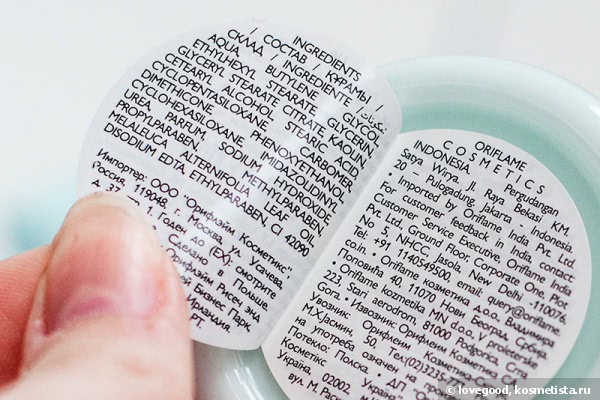 INGREDIENTS
СКЛАД / СОСТАВ / ҚҰРАМЫ /
INGREDIENTE
AQUA, BUTYLENE GLYCOL,
ETHYLHEXYL STEARATE, GLYCERIN,
GLYCERYL STEARATE CITRATE, KAOLIN,
CETEARYL ALCOHOL, STEARIC ACID,
CYCLOPENTASILOXANE, CARBOMER,
DIMETHICONE, PHENOXYETHANOL,
CYCLOHEXASILOXANE, IMIDAZOLIDINYL
UREA, PARFUM, SODIUM HYDROXIDE,
PROPYLPARABEN, METHYLPARABEN,
MELALEUCA ALTERNIFOLIA LEAF OIL,
DISODIUM EDTA, ETHYLPARABEN, CI 42090
Импортер: ООО "Орифлэйм Косметикс"
Россия, 119048, г. Москва, ул. Усачева,
д. 37
Годен до (EX): смотрите
Сделано в Польше
Бизнес Парк
Ирландия.
ORIFLAME
COSMETICS
INDONESIA, Pergudangan
Satya Wirya, Jl. Raya Bekasi KM.
20 – Pulogadung, Jakarta - Indonesia.
• Imported by Oriflame India Pvt. Ltd.
For customer feedback in India, contact:
Customer Service Executive, Oriflame India
Pvt. Ltd. Ground Floor, Corporate One, Plot
No 5, NHCC, Jasola, New Delhi 110076,
Tel: +91 1140549500, email: query@oriflame.
co.in. • Oriflame kozmetika д.о.о, Владимира
Поповића 40, 11070 Нови Београд, Србија
• Oriflame kozmetika MN d.o.o, V proleterske
223, Stari aerodrom, 81000 Podgorica, Crna
Gora • Извозник: Орифлейм Косметикс
Увозник:
М.Х.Јасмин, 50, Тел:(02)32
на употреба означен на
Потекло: Полска. • ДП "О
Косметікс Україна"
Україна, 02002,
вул. М. Рас
© lovegood, kosmetista.ru